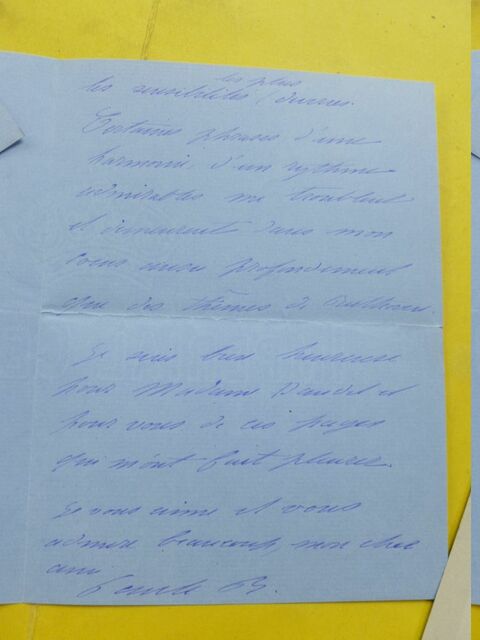 les plus
les sensibilités diverses.
Certaines phrases d'une
harmonie, d'un rythme
admirables me troublent
et demeurent dans mon
aussi profondément
que des thèmes de Beethoven.
Je suis bien heureuse
pour Madame et
pour vous de ces pages
qui m'ont fait pleurer.
Je vous aime et vous
admire beaucoup, mon cher
ami